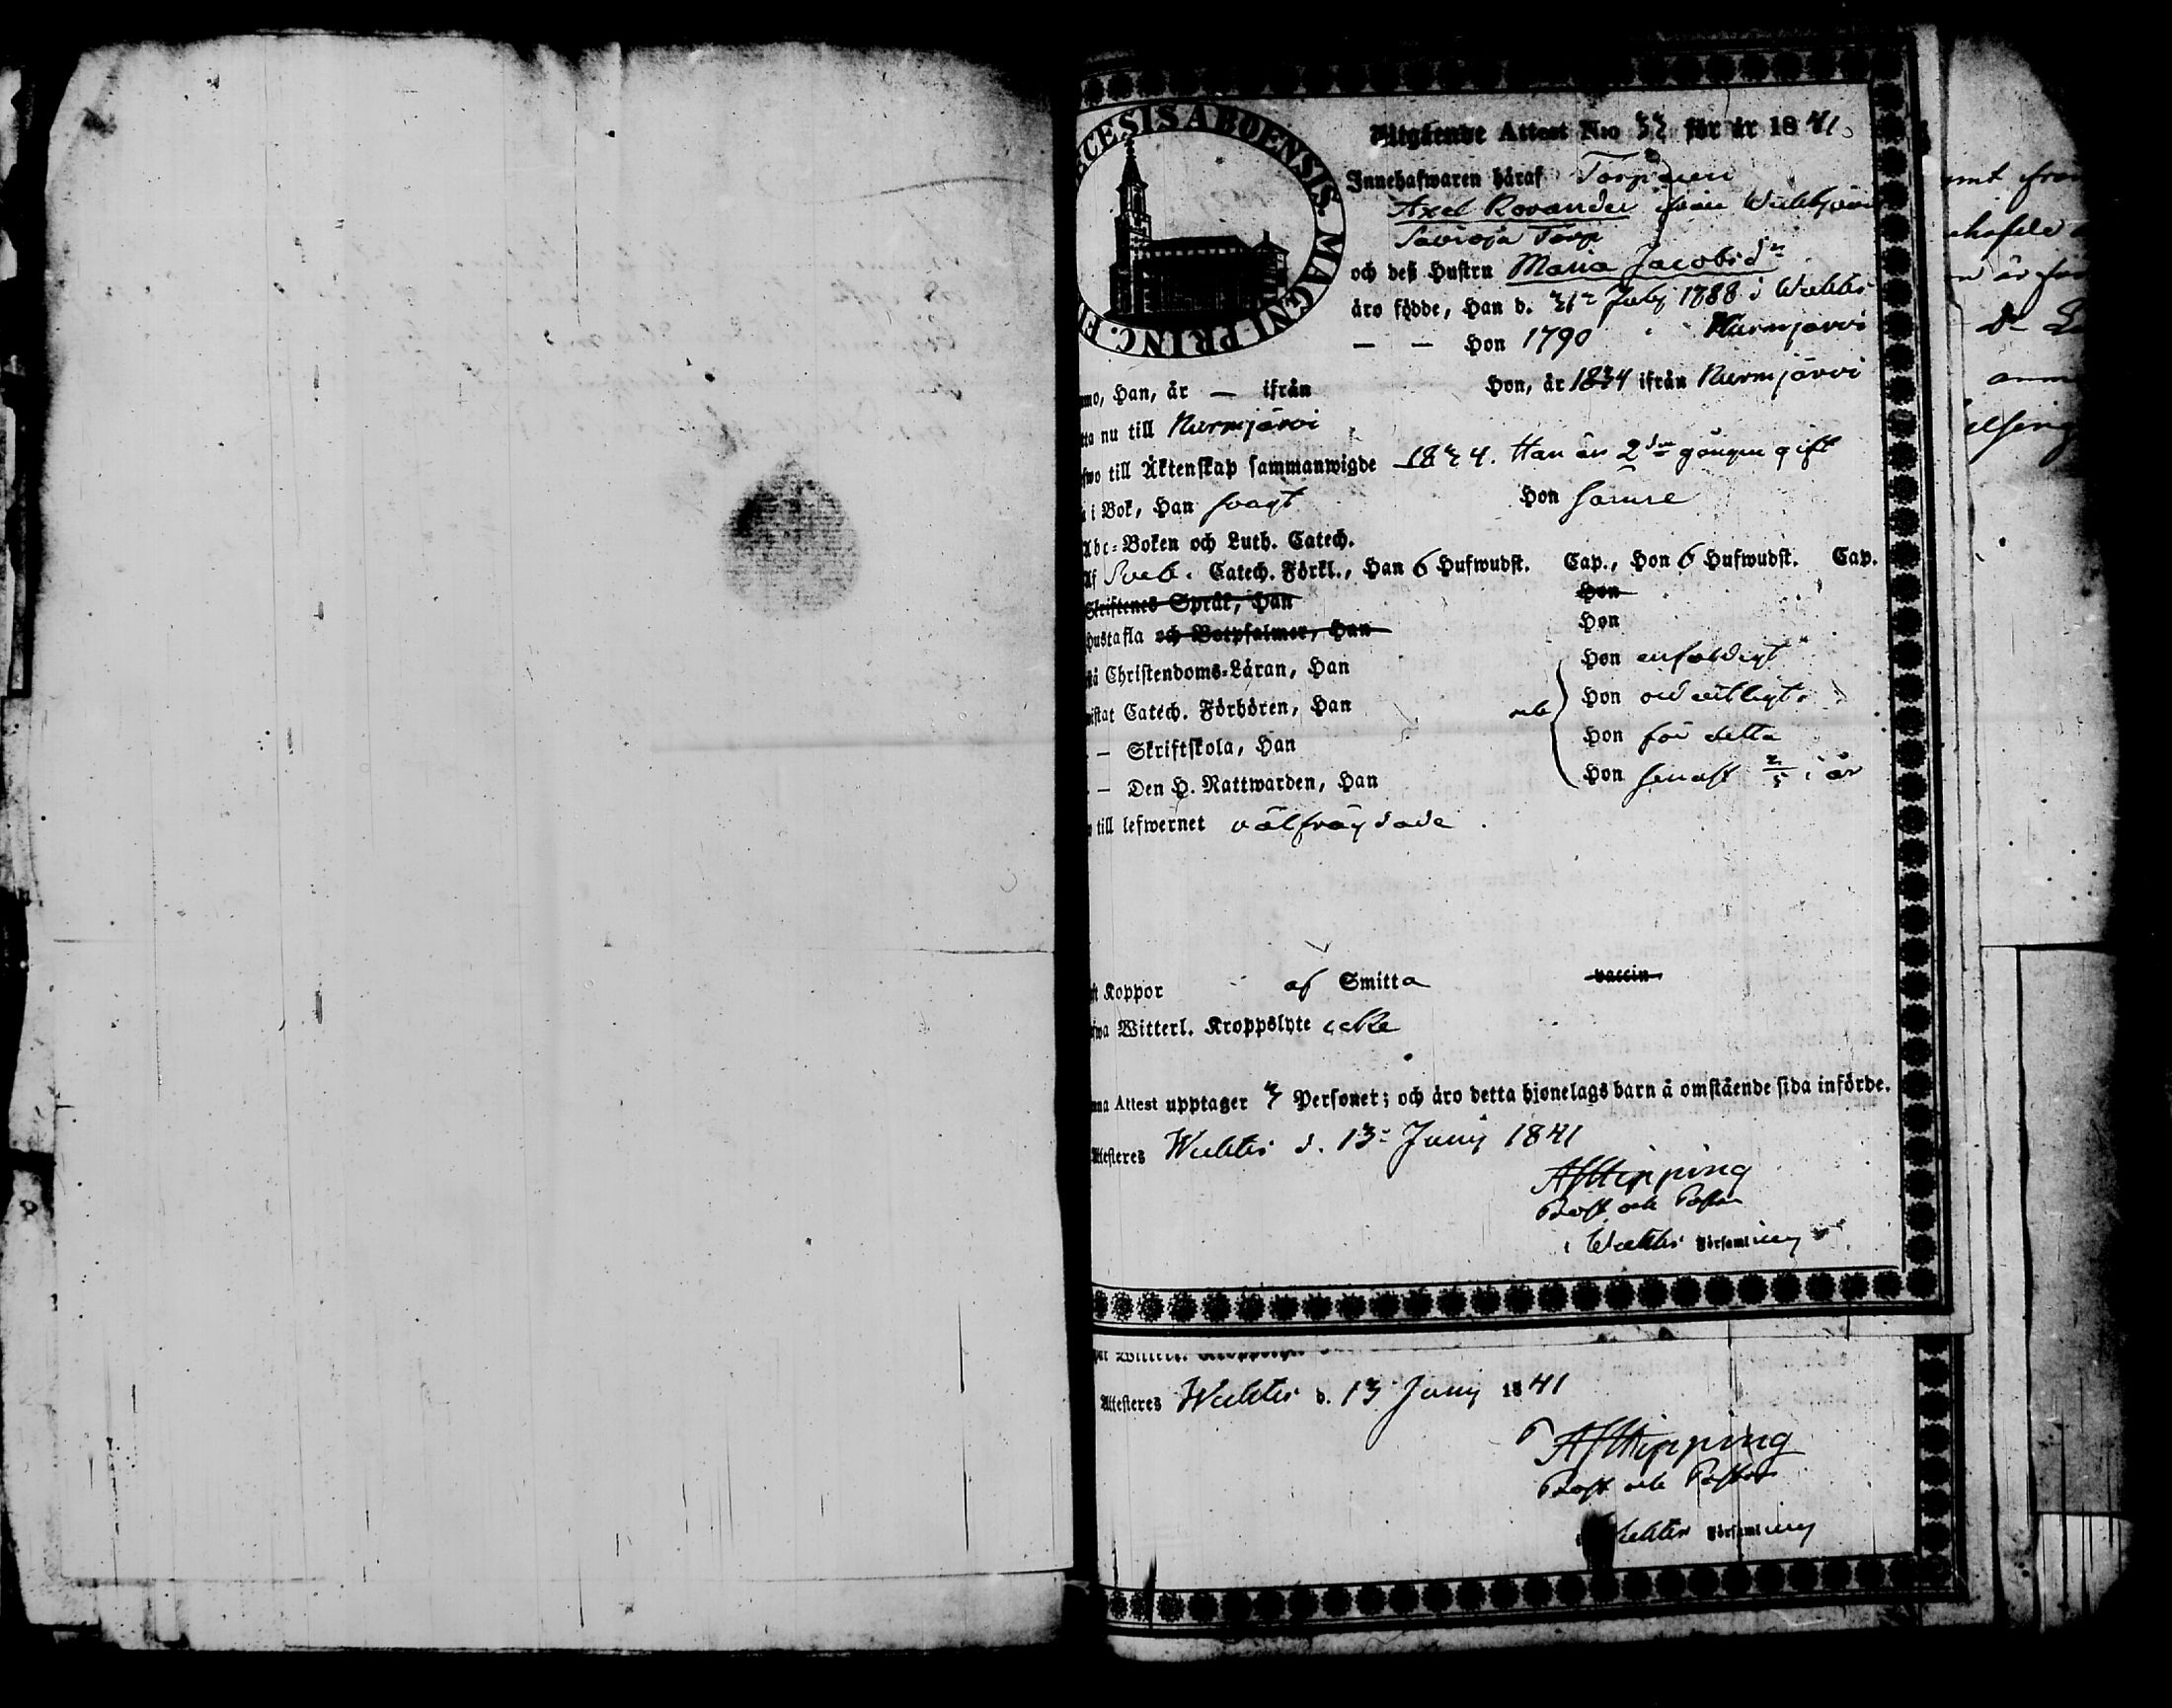 ECESIS ABOENSIS. MAGNI PRINC. FI
Utgående Attest N:o 32 för år 1841.
Innehafwaren häraf Torparen
Axel Rovander ifrån Wichtis
Torp
och deß Hustru Maria Jacobsdr
äro födde, Han d. 21 Julij 1788 i Wichtis
— — Hon 1790 " Nurmjärvi
mo, Han, år — ifrån Hon, år 1834 ifrån Nurmjärvi
tta nu till Nurmjärvi
fwo till Äktenskap sammanwigde 1824. Han är 2dra gången gift
i Bok, Han svagt Hon samre
Abc-Boken och Luth. Catech.
Af Sveb. Catech. Förkl., Han 6 Hufwudst. Cap., Hon 6 Hufwudst. Cap.
Skriftenes Språk, Han Hon
Hustafla och Botpsalmer, Han Hon
stå Christendoms-Läran, Han Hon enfaldigt
wistat Catech. Förhören, Han och Hon ordentligt
— Skriftskola, Han Hon för detta
— Den H. Nattwarden, Han Hon senast 2/5 i år
till lefwernet välfrägdade.
ft Koppor af Smitta vaccin.
fwa Witterl. Kroppslyte icke
nna Attest upptager 3 Personer; och äro detta hjonelags barn å omstående sida införde.
Attesteres Wichtis d. 13 Junij 1841
AFHipping
Prost och Pastor
i Wichtis Församling
Attesteres Wichtis d. 13 Junij 1841
AFHipping
Prost och Pastor
Wichtis Församling